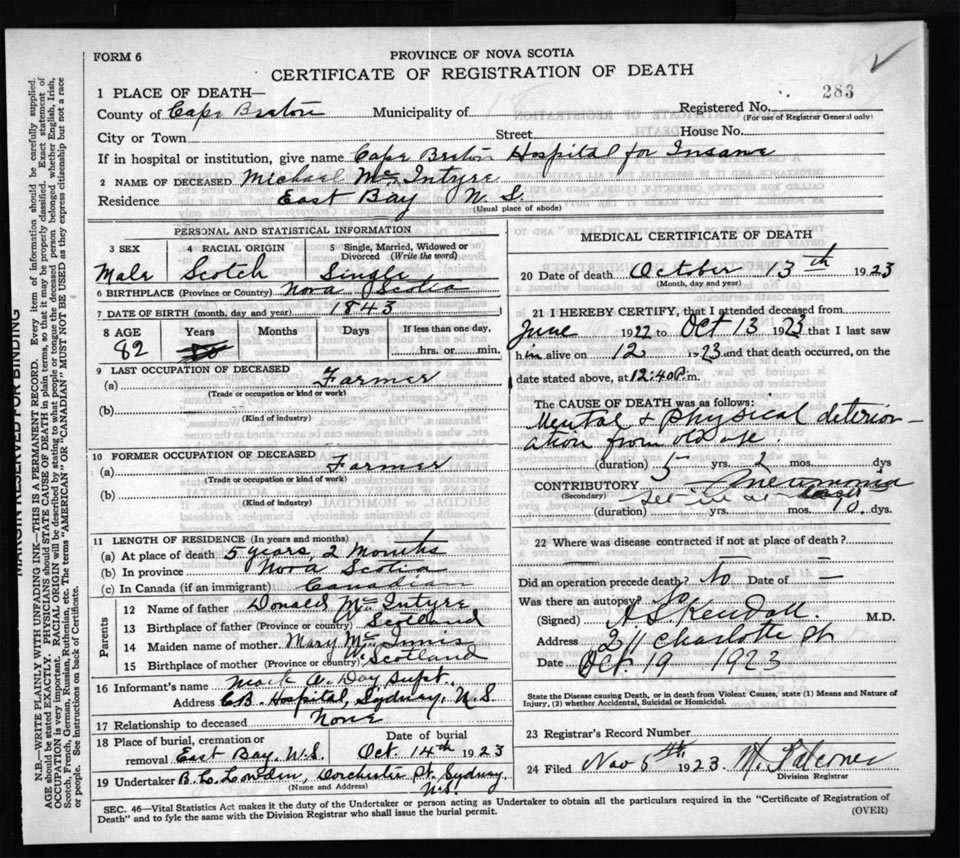 FORM 6
PROVINCE OF NOVA SCOTIA
CERTIFICATE OF REGISTRATION OF DEATH
283
1 PLACE OF DEATH—
County of Cape Breton Municipality of Registered No.
(For use of Registrar General only)
City or Town Street House No.
If in hospital or institution, give name Cape Breton Hospital for Insane
2 NAME OF DECEASED Michael Mc Intyre
Residence East Bay N. S.
(Usual place of abode)
PERSONAL AND STATISTICAL INFORMATION
3 SEX 4 RACIAL ORIGIN 5 Single, Married, Widowed or Divorced (Write the word)
Male Scotch Single
6 BIRTHPLACE (Province or Country) Nova Scotia
7 DATE OF BIRTH (month, day and year) 1843
8 AGE Years Months Days If less than one day,
82 hrs. or min.
9 LAST OCCUPATION OF DECEASED
(a) Farmer
(Trade or occupation or kind or work)
(b)
(Kind of industry)
10 FORMER OCCUPATION OF DECEASED
(a) Farmer
(Trade or occupation or kind of work)
(b)
(Kind of industry)
11 LENGTH OF RESIDENCE (In years and months)
(a) At place of death 5 years, 2 Months
(b) In province Nova Scotia
(c) In Canada (if an immigrant) Canadian
Parents
12 Name of father Donald Mc Intyre
13 Birthplace of father (Province or country) Scotland
14 Maiden name of mother Mary Mc Innis
15 Birthplace of mother (Province or country) Scotland
16 Informant's name Mark A. Day Supt.
Address C.B. Hospital, Sydney, N.S
17 Relationship to deceased None
18 Place of burial, cremation or removal East Bay, N.S. Date of burial Oct. 14th 1923
19 Undertaker B.L. Lowden, Dorchester St. Sydney, N.S.
(Name and Address)
MEDICAL CERTIFICATE OF DEATH
20 Date of death October 13th 1923
(Month, day and year)
21 I HEREBY CERTIFY, that I attended deceased from
June 1922 to Oct 13 1923 that I last saw
him alive on 12 1923 and that death occurred, on the
date stated above, at 12:40 P.m.
The CAUSE OF DEATH was as follows:
Mental & physical deterior-
ation from old age.
(duration) 5 yrs. 2 mos. dys
CONTRIBUTORY Pneumonia
(Secondary) set in at
(duration) yrs. mos. dys.
22 Where was disease contracted if not at place of death?
Did an operation precede death? No Date of —
Was there an autopsy? No
(Signed) A S Kendall M.D.
Address 211 Charlotte St
Date Oct. 19 1923
State the Disease causing Death, or in death from Violent Causes, state (1) Means and Nature of
Injury, (2) whether Accidental, Suicidal or Homicidal.
23 Registrar's Record Number
24 Filed Nov 5th 1923
Division Registrar
SEC. 46—Vital Statistics Act makes it the duty of the Undertaker or person acting as Undertaker to obtain all the particulars required in the "Certificate of Registration of
Death" and to fyle the same with the Division Registrar who shall issue the burial permit.
(OVER)
MARGIN RESERVED FOR BINDING
N.B.—WRITE PLAINLY WITH UNFADING INK—THIS IS A PERMANENT RECORD. Every item of information should be carefully supplied.
AGE should be stated EXACTLY. PHYSICIANS should STATE CAUSE OF DEATH in plain terms, so that it may be properly classified. Exact statement of
OCCUPATION is very important. RACIAL ORIGIN will be described by stating to what people or tongue the deceased person belonged whether English, Irish,
Scotch, French, German, Russian, Ruthenian, etc. The terms "AMERICAN" OR "CANADIAN" MUST NOT BE USED as they express citizenship but not a race
or people. See instructions on back of Certificate.